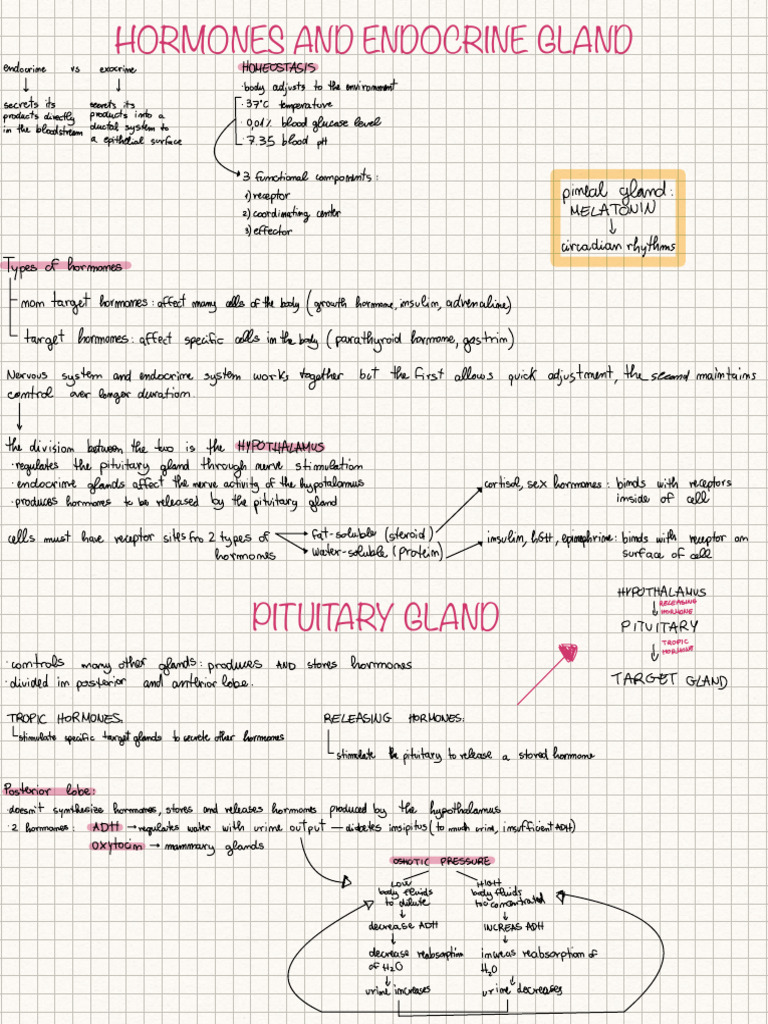 HORMONES AND ENDOCRINE GLAND
endocrine vs exocrine
secrets its
products directly
in the bloodstream
secrets its
products into a
ductal system to
a epithelial surface
HOMEOSTASIS
· body adjusts to the environment
· 37°C temperature
· 0,01% blood glucose level
· 7.35 blood pH
3 functional components:
1) receptor
2) coordinating center
3) effector
pineal gland:
MELATONIN
↓
circadian rhythms
Types of hormones
non target hormones: affect many cells of the body (growth hormone, insulin, adrenaline)
target hormones: affect specific cells in the body (parathyroid hormone, gastrin)
Nervous system and endocrine system works together but the first allows quick adjustment, the second maintains
control over longer duration.
the division between the two is the HYPOTHALAMUS
· regulates the pituitary gland through nerve stimulation
· endocrine glands affect the nerve activity of the hypotalamus
· produces hormones to be released by the pituitary gland
cells must have receptor sites fro 2 types of
hormones
fat-soluble (steroid)
water-soluble (protein)
cortisol, sex hormones: binds with receptors
inside of cell
insulin, hGH, epinephrine: binds with receptor on
surface of cell
PITUITARY GLAND
· controls many other glands: produces AND stores hormones
· divided in posterior and anterior lobe.
HYPOTHALAMUS
↓ RELEASING
HORMONE
PITUITARY
↓ TROPIC
HORMONE
TARGET GLAND
TROPIC HORMONES:
stimulate specific target glands to secrete other hormones
RELEASING HORMONES:
stimulate the pituitary to release a stored hormone
Posterior lobe:
· doesn't synthesize hormones, stores and releases hormones produced by the hypothalamus
· 2 hormones: ADH → regulates water with urine output — diabetes insipitus (to much urine, insufficent ADH)
oxytocin → mammary glands
OSMOTIC PRESSURE
LOW
body fluids
to dilute
↓
decrease ADH
↓
decrease reabsorption
of H2O
↓
urine increases
HIGH
body fluids
too concentrated
↓
INCREAS ADH
↓
inureas reabsorption of
H2O
↓
urine decreases